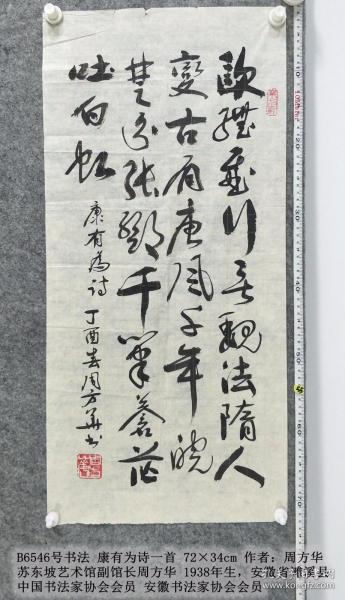 歐體盛行无魏法隋人
變古有唐風千年皖
楚分張鄧千筆蒼茫
吐白虹
康有為詩 丁酉春周方華书
B6546号书法 康有为诗一首 72×34cm 作者：周方华
苏东坡艺术馆副馆长周方华 1938年生，安徽省濉溪县
中国书法家协会会员 安徽书法家协会会员